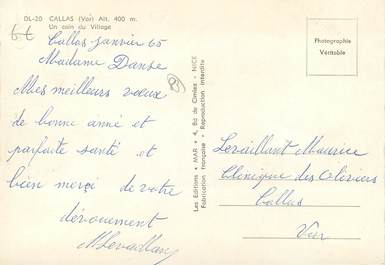 DL-20 CALLAS (Var) Alt. 400 m.
Un coin du Village
Callas janvier 65
Madame Danse
Mes meilleurs vœux
de bonne année et
parfaite santé et
bien merci de votre
dévouement
MLevaillant
Les Editions "MAR" 4, Bd de Cimiez - NICE
Fabrication française - Reproduction interdite
Photographie
Véritable
Levaillant Maurice
Clinique des Oliviers
Callas
Var